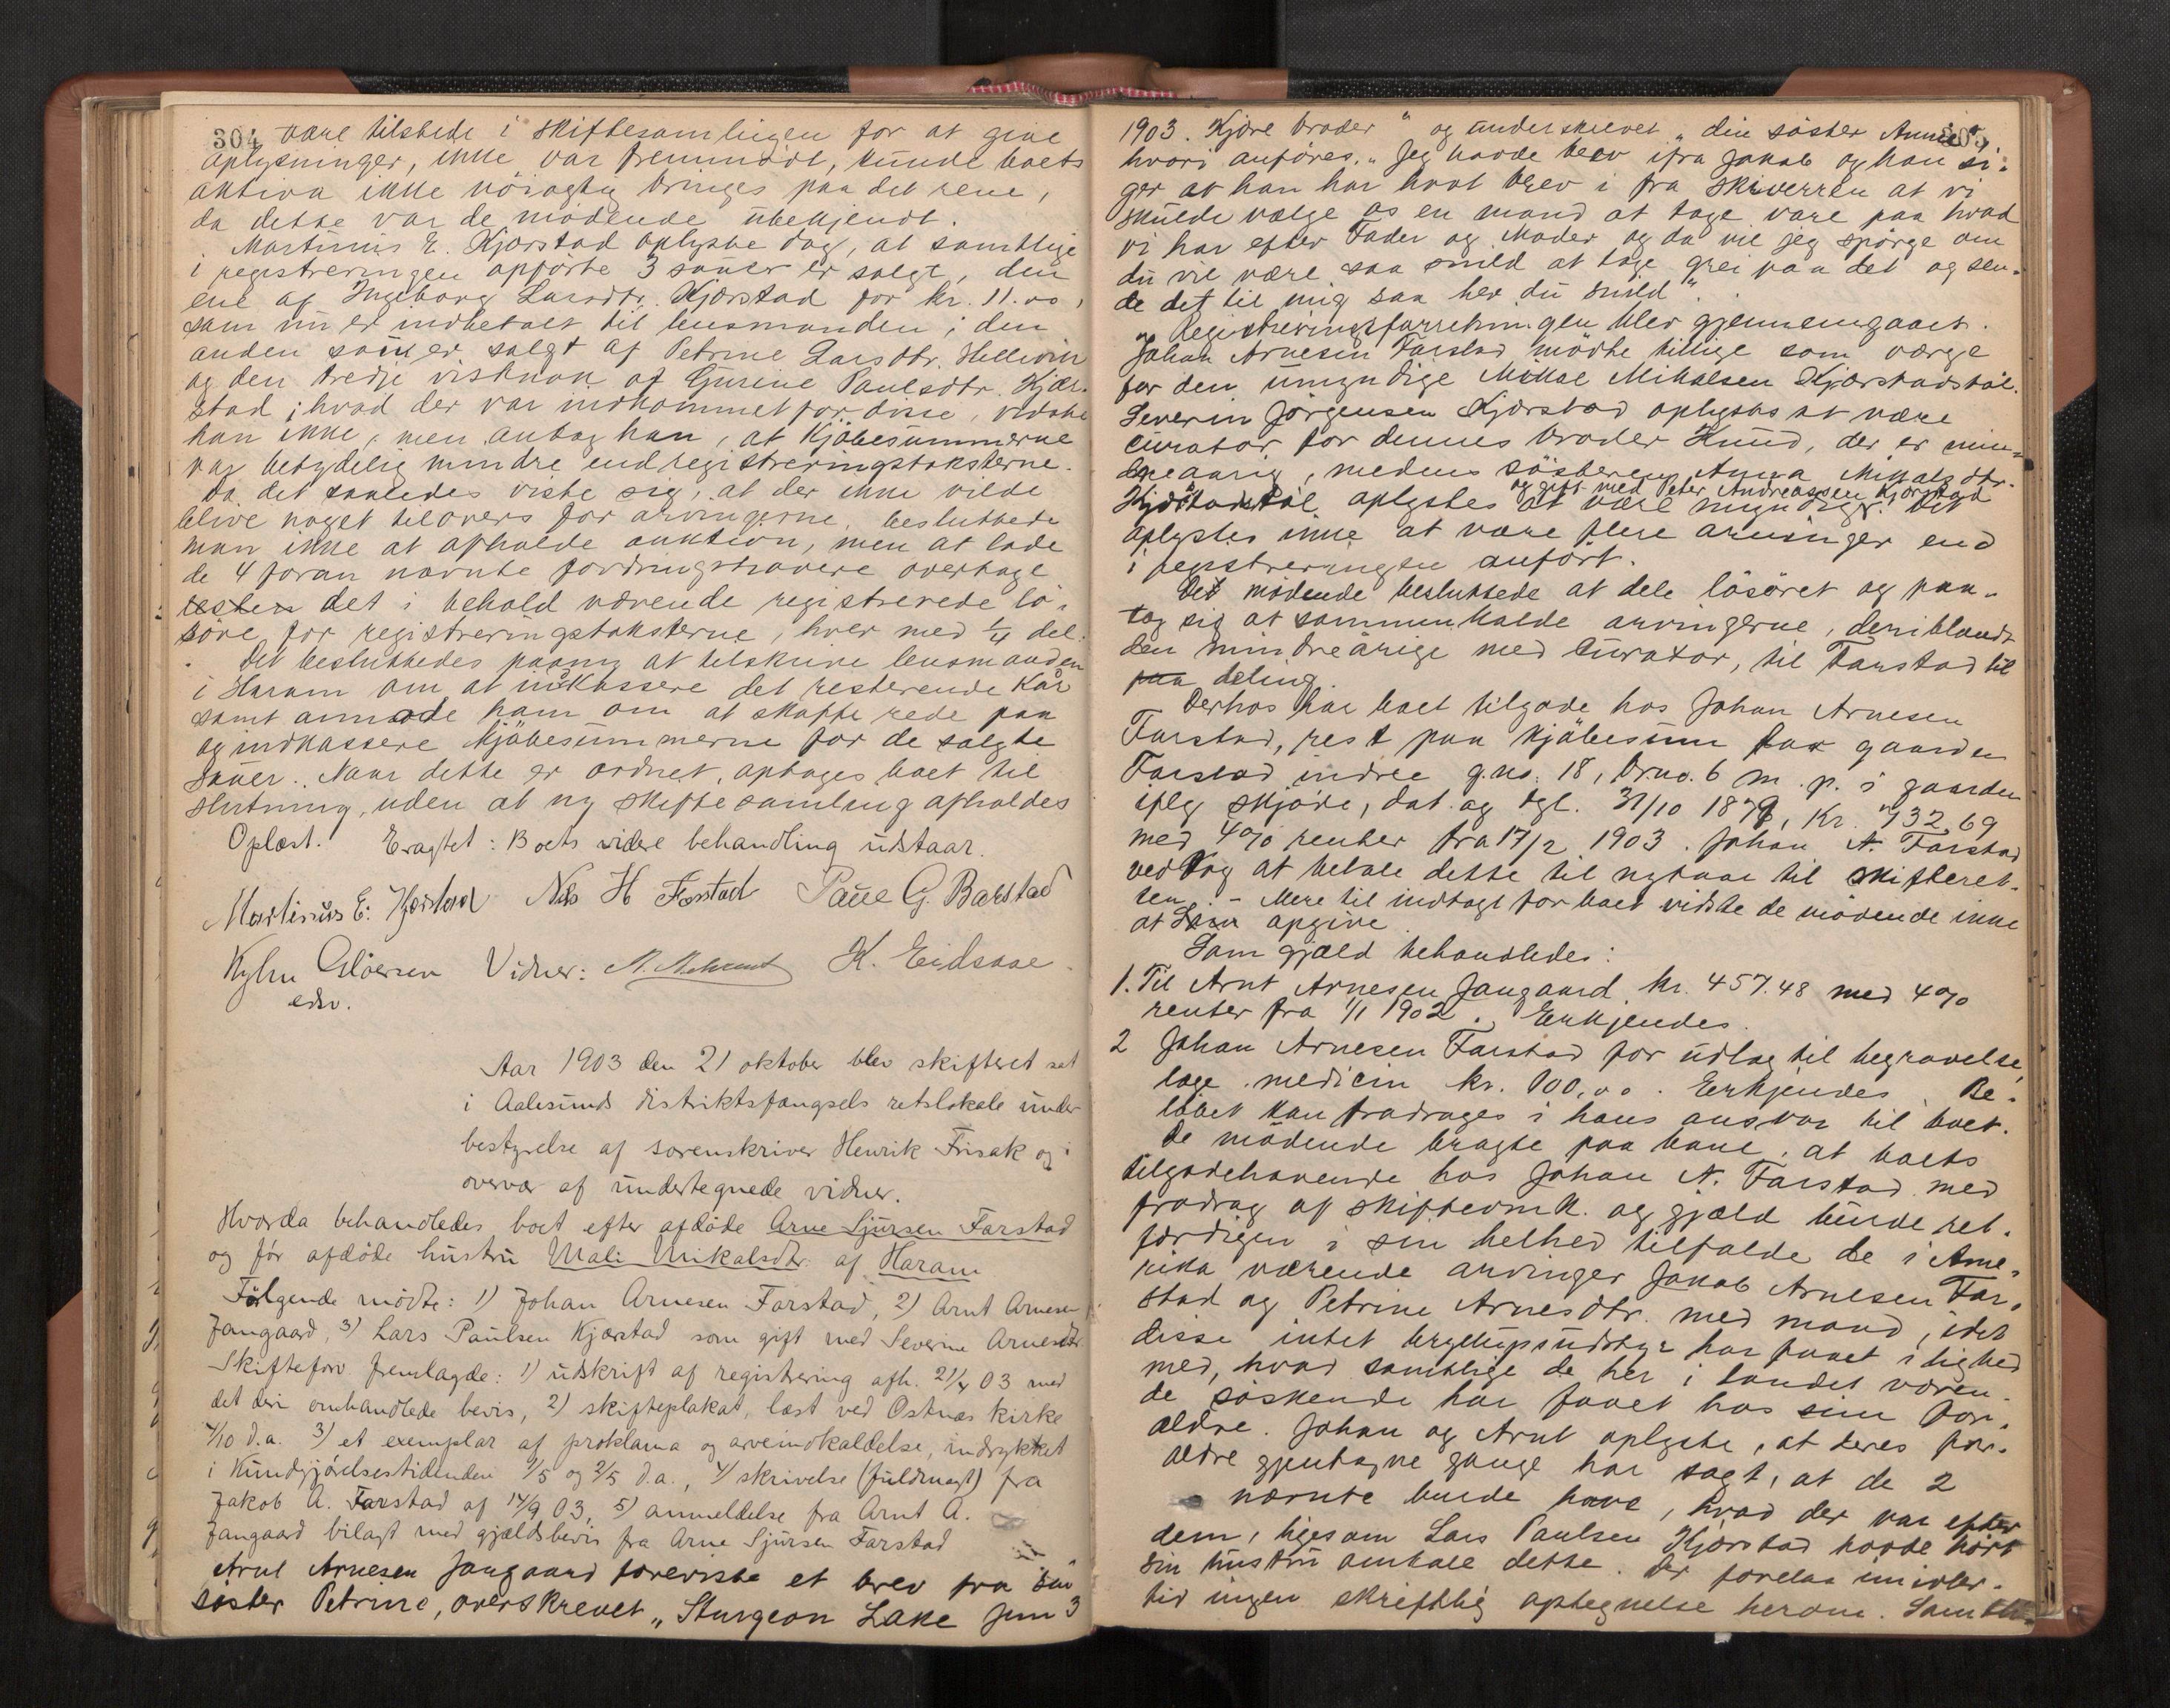 304 være tilstede i skiftesamlingen for at give
oplysninger, ikke var fremmødt, kunde boets
aktiva ikke nöiagtig bringes paa det rene,
da dette var de mødende ubekjendt.
Martinus E. Kjærstad oplyste dog, at samtlige
i registreringen opførte 3 sauer er solgt, den
ene af Ingeborg Larsdtr. Kjærstad for kr. 11.00,
som nu er indbetalt til lensmanden; den
anden sau er solgt af Petrine Larsdtr. Hellevik
og den tredje vistnok af Gurine Paulsdtr. Kjær-
stad; hvad der var indkommet for disse, vidste
han ikke, men antog han, at kjøbesummerne
var betydelig mindre end registreringstaksterne.
Da det saaledes viste sig, at der ikke vilde
blive noget tilovers for arvingerne, besluttede
man ikke at afholde auktion, men at lade
de 4 foran nævnte fordringshavere overtage
resten det i behold værende registrerede lö-
söre for registreringstaksterne, hver med 1/4 del.
Det besluttedes paany at tilskrive lensmanden
i Haram om at inkassere det resterende kår
samt anmode ham om at skaffe rede paa
og indkassere kjøbesummerne for de solgte
sauer. Naar dette er ordnet, optages boet til
slutning, uden at ny skiftesamling afholdes
Oplæst. Eragtet: Boets videre behandling udstaar.
Martinus E: Kjærstad Nils H Farstad Paul G. Barstad
Kylen Glöersen Vidner: K. Eidsaae.
edsv.
Aar 1903 den 21 oktober blev skifteret sat
i Aalesunds distriktsfængsels retslokale under
bestyrelse af sorenskriver Henrik Frisak og i
overvær af undertegnede vidner.
Hvorda behandledes boet efter afdöde Arne Sjursen Farstad
og för afdöde hustru Mali Mikalsdtr. af Haram
Fölgende mödte: 1) Johan Arnesen Farstad, 2) Arnt Arnesen
Jangaard, 3) Lars Paulsen Kjærstad som gift med Severine Arnesdtr.
Skifteforv. fremlagde: 1) udskrift af registrering afh. 21/4 03 med
det deri omhandlede bevis, 2) skifteplakat, læst ved Østnæs kirke
4/10 d.a. 3) et exemplar af proklama og arveindkaldelse, indrykket
i Kundgjörelsestidenden 1/5 og 2/5 d.a., 4) skrivelse (fuldmagt) fra
Jakob A. Farstad af 14/9 03, 5) anmeldelse fra Arnt A.
Jangaard bilagt med gjældsbevis fra Arne Sjursen Farstad
Arnt Arnesen Jangaard foreviste et brev fra sin
søster Petrine, overskrevet „Sturgeon Lake Jun 3
1903. Kjære broder" og underskrevet „din söster Annie",
hvori anföres: „Jeg havde brev ifra Jakob og han si-
ger at han har havt brev i fra skriverren at vi
skulde vælge os en mand at tage vare paa hvad
vi har efter Fader og Moder og da vil jeg spørge om
du vil være saa snild at tage grei paa det og sen-
de det til mig saa her du snild".
Registreringsforretningen blev gjennemgaaet.
Johan Arnesen Farstad mødte tillige som værge
for den umyndige Mikal Mikalsen Kjærstadstøl.
Severin Jørgensen Kjærstad oplystes at være
curator for dennes broder Knud, der er min-
dreaarig, medens søsteren Anna Mikalsdtr.
og gift med Peter Andreassen Kjærstad
Kjærstadstøl oplystes at være myndig. Det
oplystes ikke at være flere arvinger end
i registreringen anført.
De mødende besluttede at dele lösöret og paa-
tog sig at sammenkalde arvingerne, deriblandt
den mindreårige med curator, til Farstad til
paa deling.
Derhos har boet tilgode hos Johan Arnesen
Farstad, rest paa kjöbesum for gaarden
Farstad indre g.no. 18, brno. 6 m. p. i gaarden
iflg skjöde, dat. og tgl. 31/10 1879, Kr. 732,69
med 4% renter fra 17/2 1903. Johan A. Farstad
vedtog at betale dette til nytaar til skifteret-
ten. - Mere til indtægt for boet vidste de mödende ikke
at opgive.
Som gjæld behandledes:
1. Til Arnt Arnesen Jangaard kr. 457.48 med 4%
renter fra 1/1 1902. Erkjendes.
2 Johan Arnesen Farstad for udlæg til begravelse,
læge, medicin kr. 100,00. Erkjendes. Be-
løbet kan fradrages i hans ansvar til boet.
De mødende bragte paa bane, at boets
tilgodehavende hos Johan A. Farstad med
fradrag af skifteomk. og gjæld burde ret-
færdigen i sin helhed tilfalde de i Ame-
rika værende arvinger Jakob Arnesen Far-
stad og Petrine Arnesdtr. med mand, idet
disse intet bryllupsudstyr har faaet i lighed
med, hvad samtlige de her i landet væren-
de söskende har faaet hos sine for-
ældre. Johan og Arnt oplyste, at deres for-
ældre gjentagne gange har sagt, at de 2
nævnte burde have, hvad der var efter
dem, ligesom Lars Paulsen Kjærstad havde hört
sin hustru omtale dette. Der forelaa imidler-
tid ingen skriftlig optegnelse herom. Samtli-